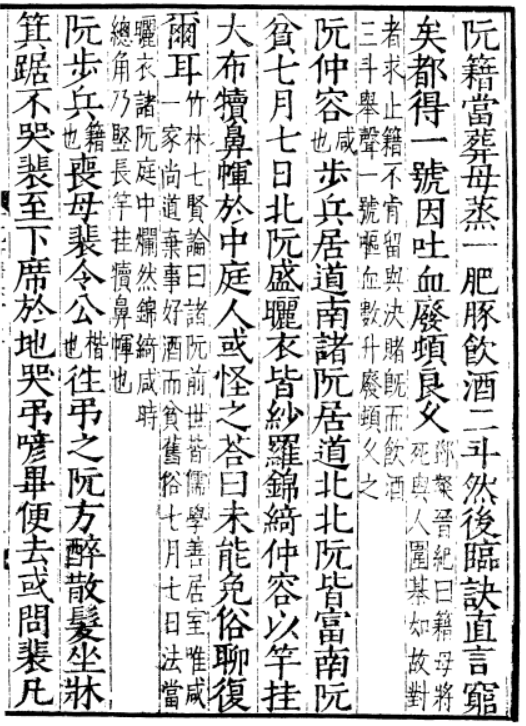 阮籍當葬母蒸一肥豚飲酒二斗然後臨訣直言窮
矣都得一號因吐血廢頓良久鄧粲晉紀曰籍母將
死與人圍棊如故對
者求止籍不肯留與決賭既而飲酒
三斗舉聲一號嘔血數升廢頓久之
阮仲容咸也步兵居道南諸阮居道北北阮皆富南阮
貧七月七日北阮盛曬衣皆紗羅錦綺仲容以竿挂
大布犢鼻㡓於中庭人或怪之荅曰未能免俗聊復
爾耳竹林七賢論曰諸阮前世皆儒學善居室唯咸
一家尚道棄事好酒而貧舊俗七月七日法當
曬衣諸阮庭中爛然錦綺咸時
總角乃竪長竿挂犢鼻㡓也
阮步兵籍也喪母裴令公楷也往弔之阮方醉散髮坐牀
箕踞不哭裴至下席於地哭弔喭畢便去或問裴凡